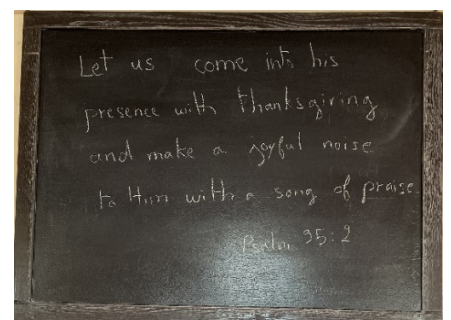 Let us come into his
presence with thanksgiving
and make a joyful noise
to Him with a song of praise
Psalm 95:2